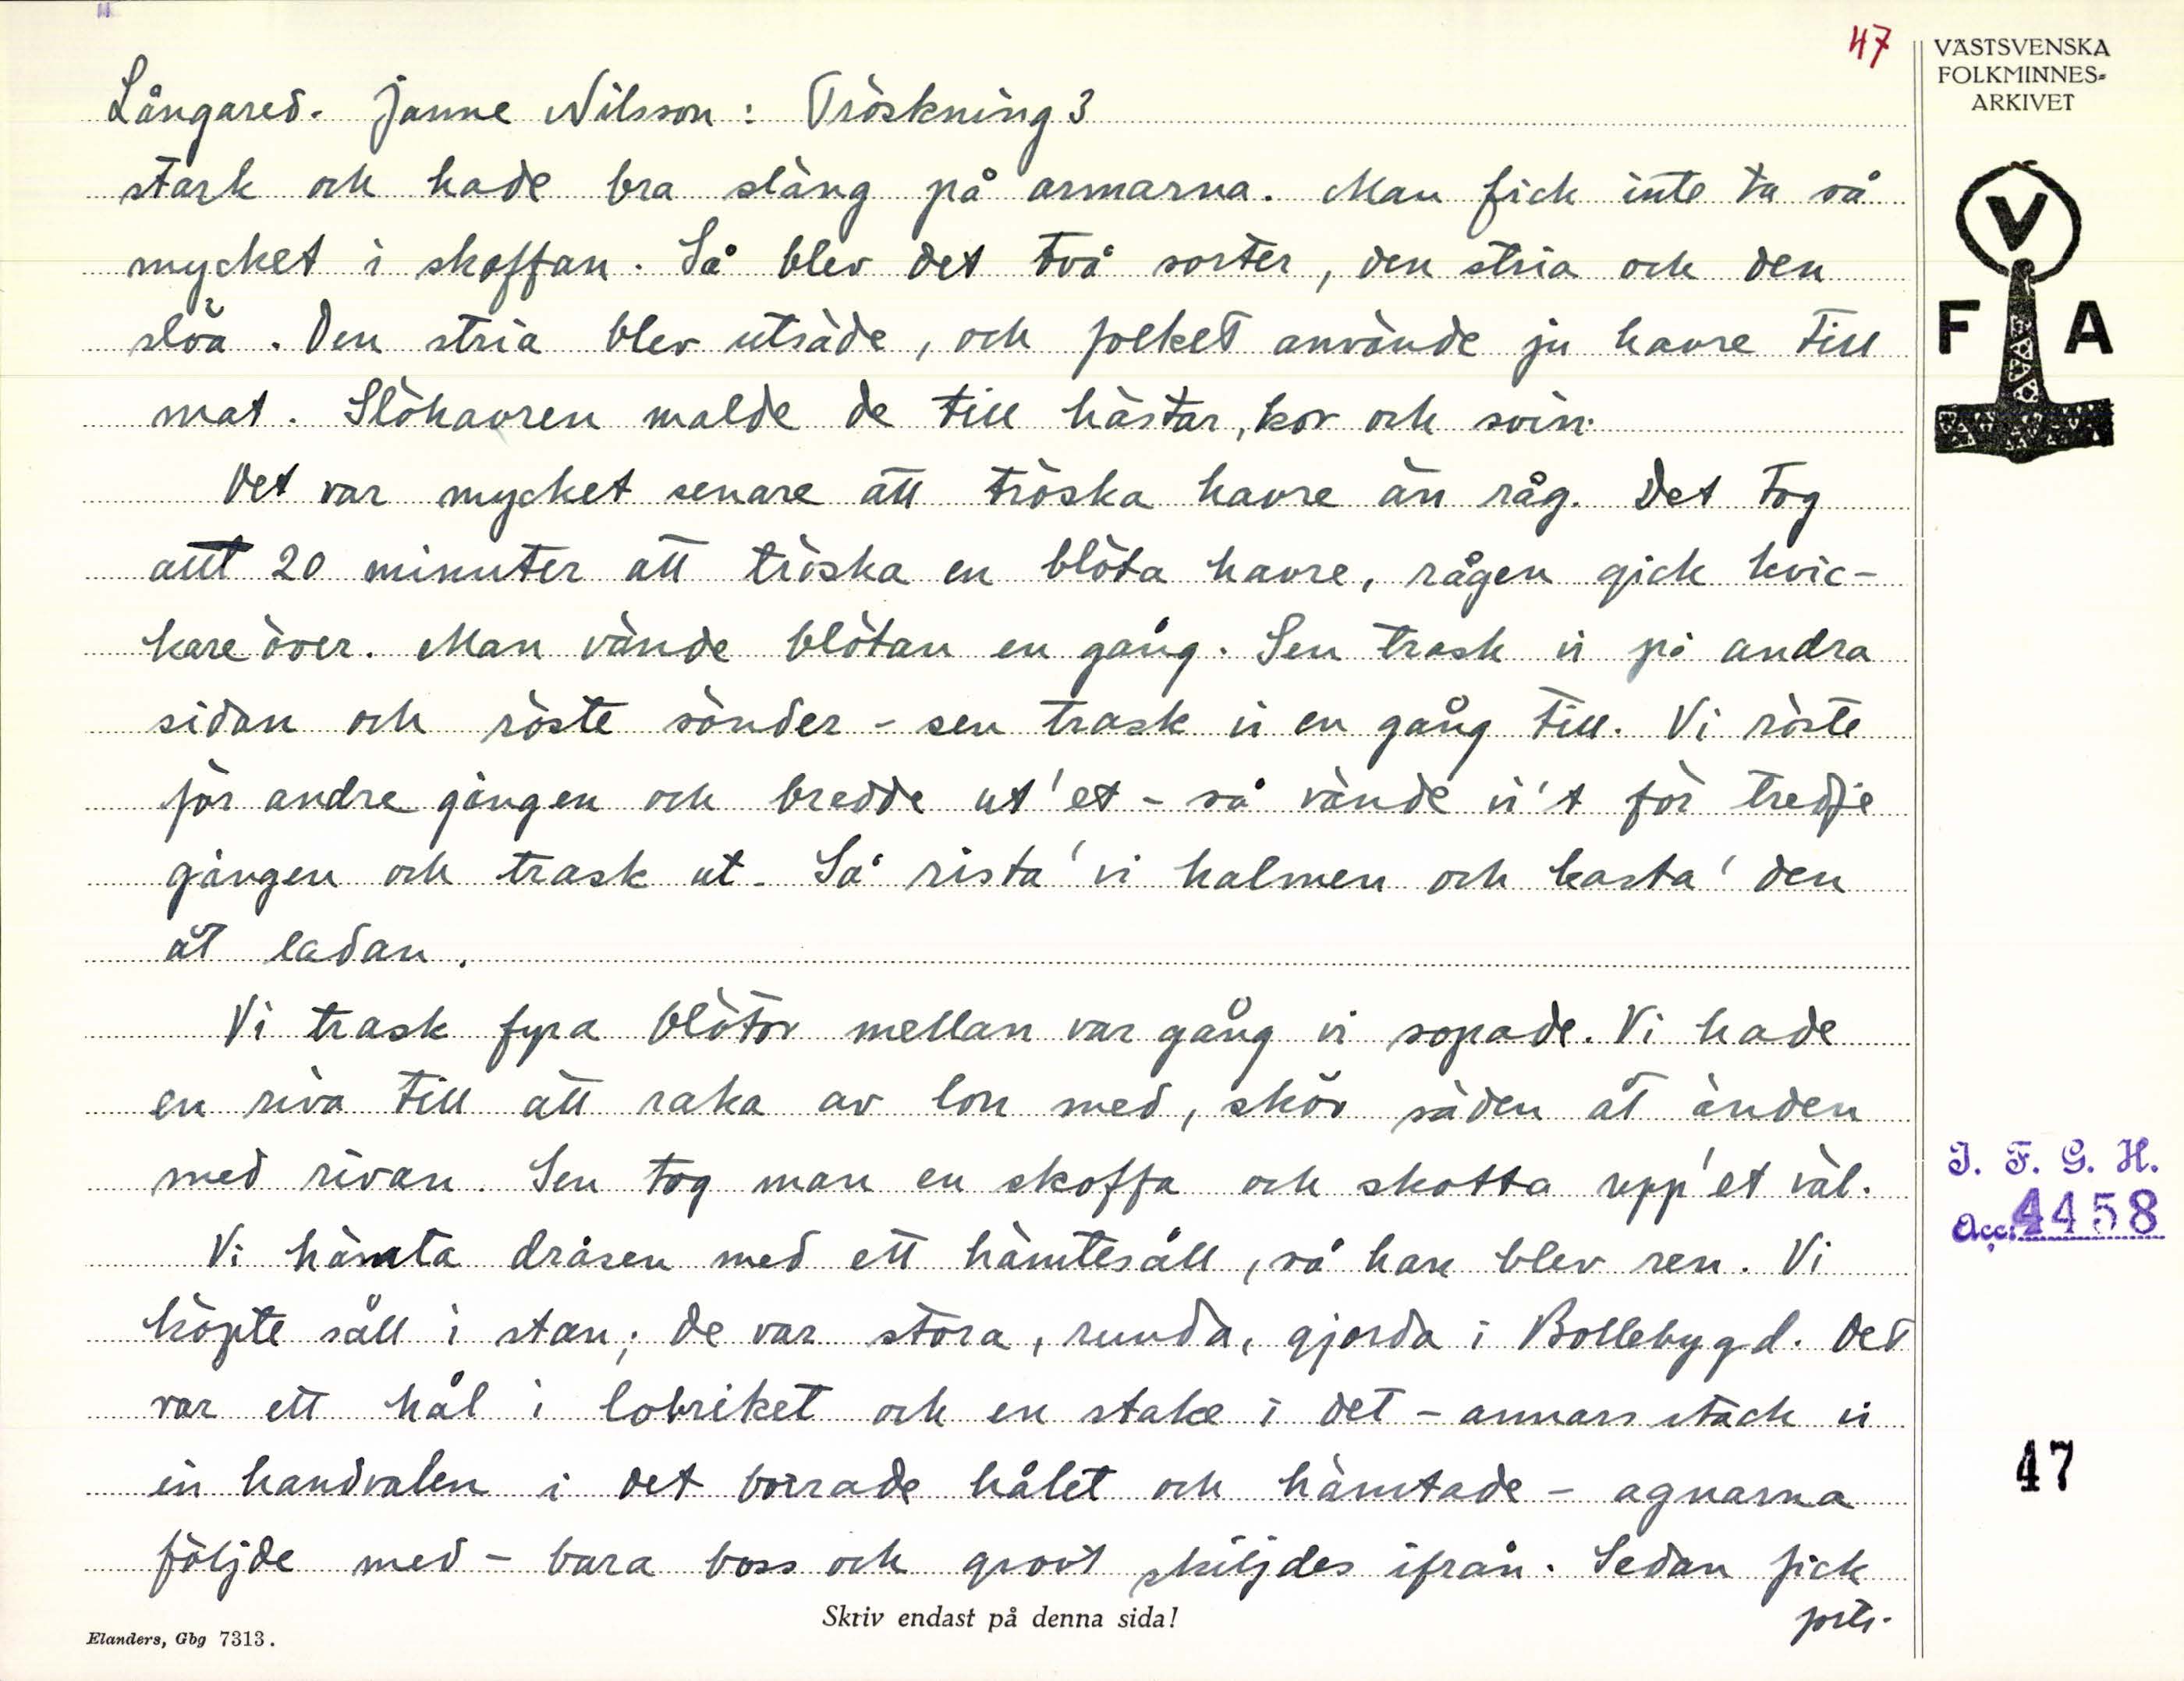 47
Långared. Janne Nilsson: Tröskning 3
stark och hade bra släng på armarna. Man fick inte ta så
mycket i skoffan. Så blev det två sorter, den stria och den
slöa. Den stria blev utsäde, och folket använde ju havre till
mat. Slöhavren malde de till hästar, kor och svin.
Det var mycket senare att tröska havre än råg. Det tog
allt 20 minuter att tröska en blöta havre, rågen gick kvic-
kare över. Man vände blötan en gång. Sen trask vi på andra
sidan och röste sönder - sen trask vi en gång till. Vi röste
för andre gången och bredde ut'et - så vände vi't för tredje
gången och trask ut. Så rista' vi halmen och kasta' den
åt ladan.
Vi trask fyra blötor mellan var gång vi sopade. Vi hade
en riva till att raka av lon med, sköv säden åt änden
med rivan. Sen tog man en skoffa och skotta upp'et väl.
Vi hämta dråsen med ett hämtesåll, så han blev ren. Vi
köpte såll i stan; de var stora, runda, gjorda i Bollebygd. Det
var ett hål i lobriket och en stake i det - annars stack vi
in handvalen i det borrade hålet och hämtade - agnarna
följde med - bara boss och grovt skiljdes ifrån. Sedan fick
forts.
Skriv endast på denna sida!
Elanders, Gbg 7313.
VÄSTSVENSKA
FOLKMINNES-
ARKIVET
V
F A
I. F. G. H.
Acc. 4458
47